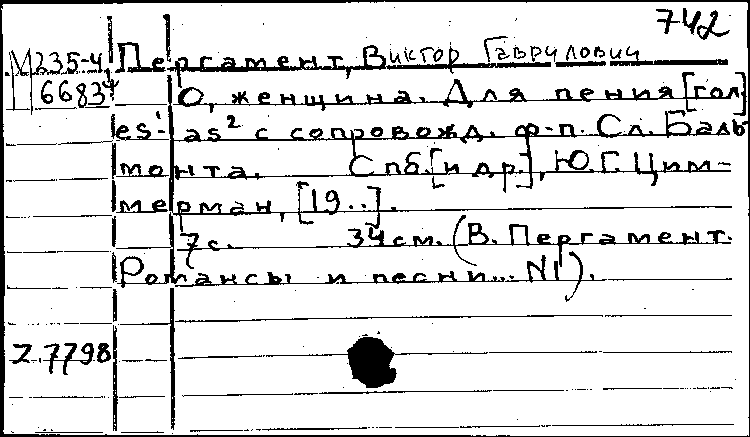 742
М235-4 Пергамент, Виктор Гаврилович
6683 О, женщина. Для пения [гол.
es¹-as² с сопровожд. ф-п. Сл. Баль
монта. Спб. [и др.], Ю.Г. Цим-
мерман, [19..].
7с. 34см. (В. Пергамент.
Романсы и песни... N1).
Z.7798